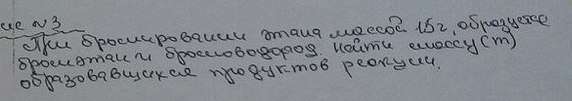 ие №3
При бромировании этана массой 15г, образуется
бромэтан и бромоводород. Найти массу (m)
образовавшихся продуктов реакции.